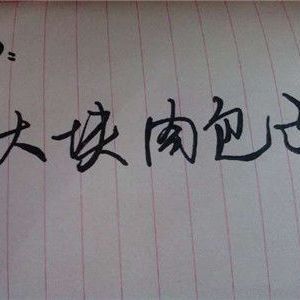 大块肉包